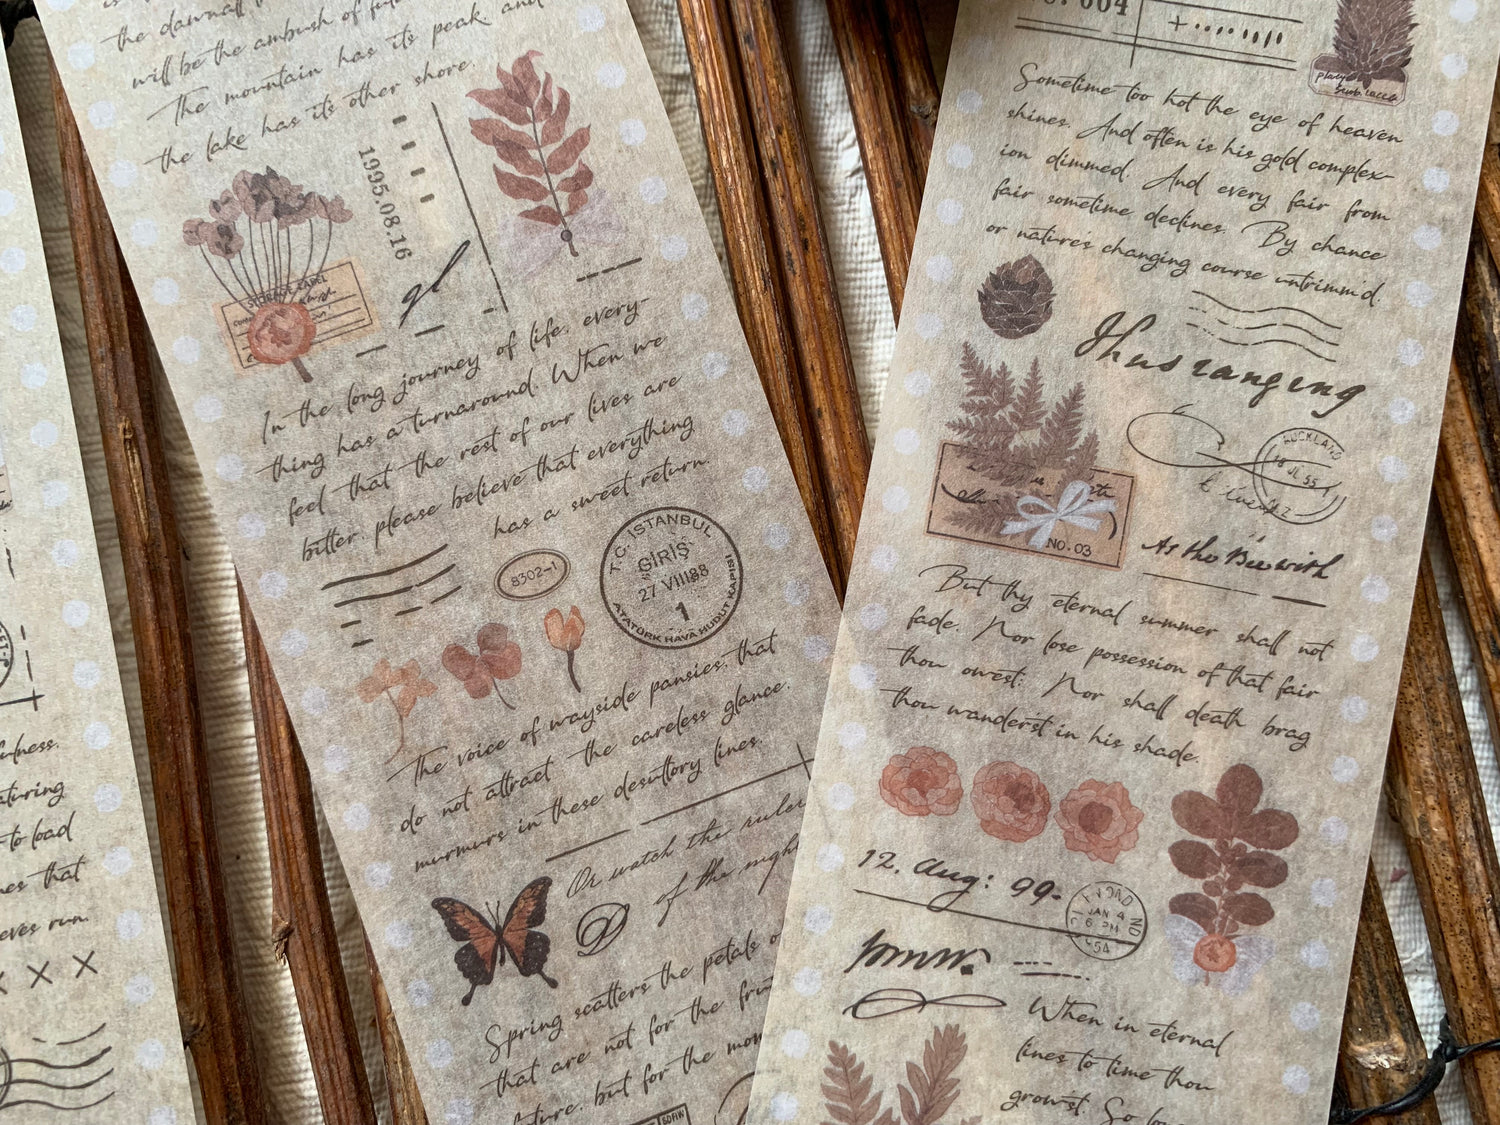 fulness.
aturing
to load
nes that
eves run.
the dawnall
will be the ambush of
The mountain has its peak and
the lake has its other shore.
1995.08.16
STORAGE LABEL
In the long journey of life, every-
thing has a turnaround. When we
feel that the rest of our lives are
bitter please believe that everything
has a sweet return.
8302-1
T.C. İSTANBUL
GİRİŞ
27 VIII 88
1
ATATÜRK HAVA HUDUT KAPISI
The voice of wayside pansies, that
do not attract the careless glance.
murmurs in these desultory lines.
Or watch the ruler
of the night
Spring scatters the petals o
that are not for the fru
future, but for the mom
No. 004
Sometime too hot the eye of heaven
shines. And often is his gold complex-
ion dimmed. And every fair from
fair sometime declines. By chance
or nature's changing course untrimm'd.
Thus ranging
AUCKLAND
18 JL 55
N.Z
NO.03
As tho Bee with
But thy eternal summer shall not
fade. Nor lose possession of that fair
thou owest; Nor shall death brag
thou wander'st in his shade.
12. Aug: 99-
JAN 4
6 PM
When in eternal
lines to time thou
grow'st. So lo